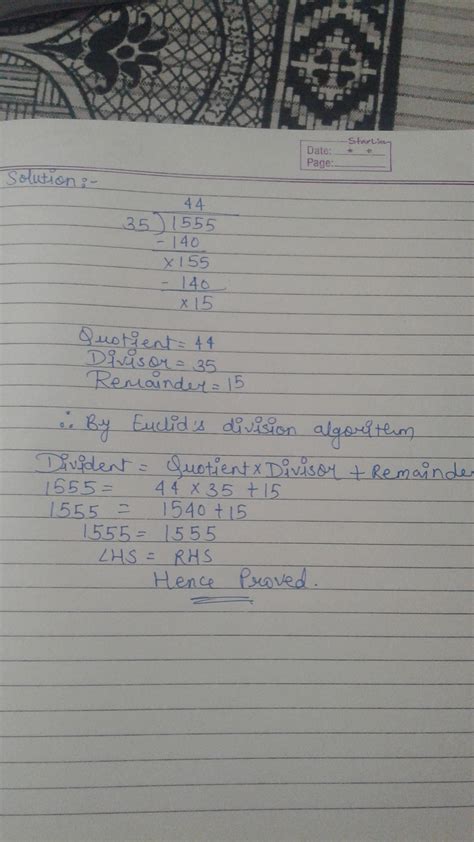 Starline
Date:
Page:
Solution:-
44
35)1555
-140
×155
-140
×15
Quotient = 44
Divisor = 35
Remainder = 15
∴ By Euclid's division algorithm
Divident = Quotient × Divisor + Remainder
1555 = 44 × 35 + 15
1555 = 1540 + 15
1555 = 1555
LHS = RHS
Hence Proved.